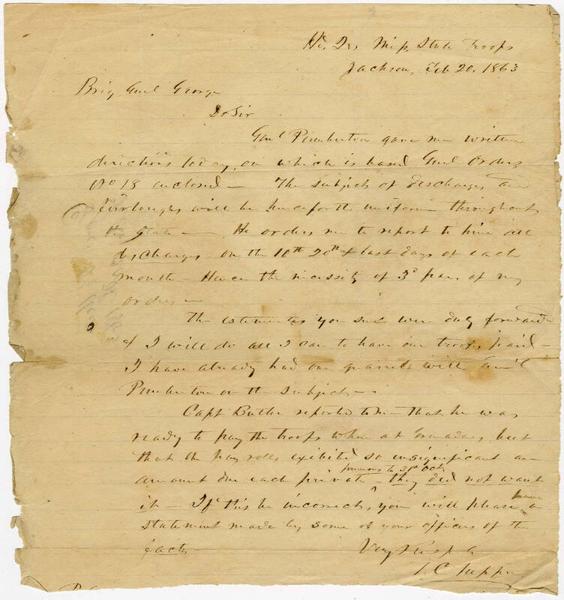 Hd Qrs Miss State Troops
Jackson, Feb 20, 1863
Brig Genl George
Dr Sir
Genl Pemberton gave me written
directions today, on which is based Genl Orders
No 18 enclosed — The subject of discharges and
furloughs will be henceforth uniform throughout
the State — He orders me to report to him all
discharges on the 10th 20th & last days of each
month — Hence the necessity of 3d par. of my
orders —
The estimates you sent were duly forwarded
& I will do all I can to have our troops paid —
I have already had one quarrel with Gen'l
Pemberton on the subject —
Capt Butler reported to me that he was
ready to pay the troops when at Grenada, but
that the pay rolls exibited so insignificant an
amount due each private previous to 31st Oct, they did not want
it — If this be incorrect, you will please have a
statement made by some of your officers of the
facts —
Very Respy
T. C. Tupper